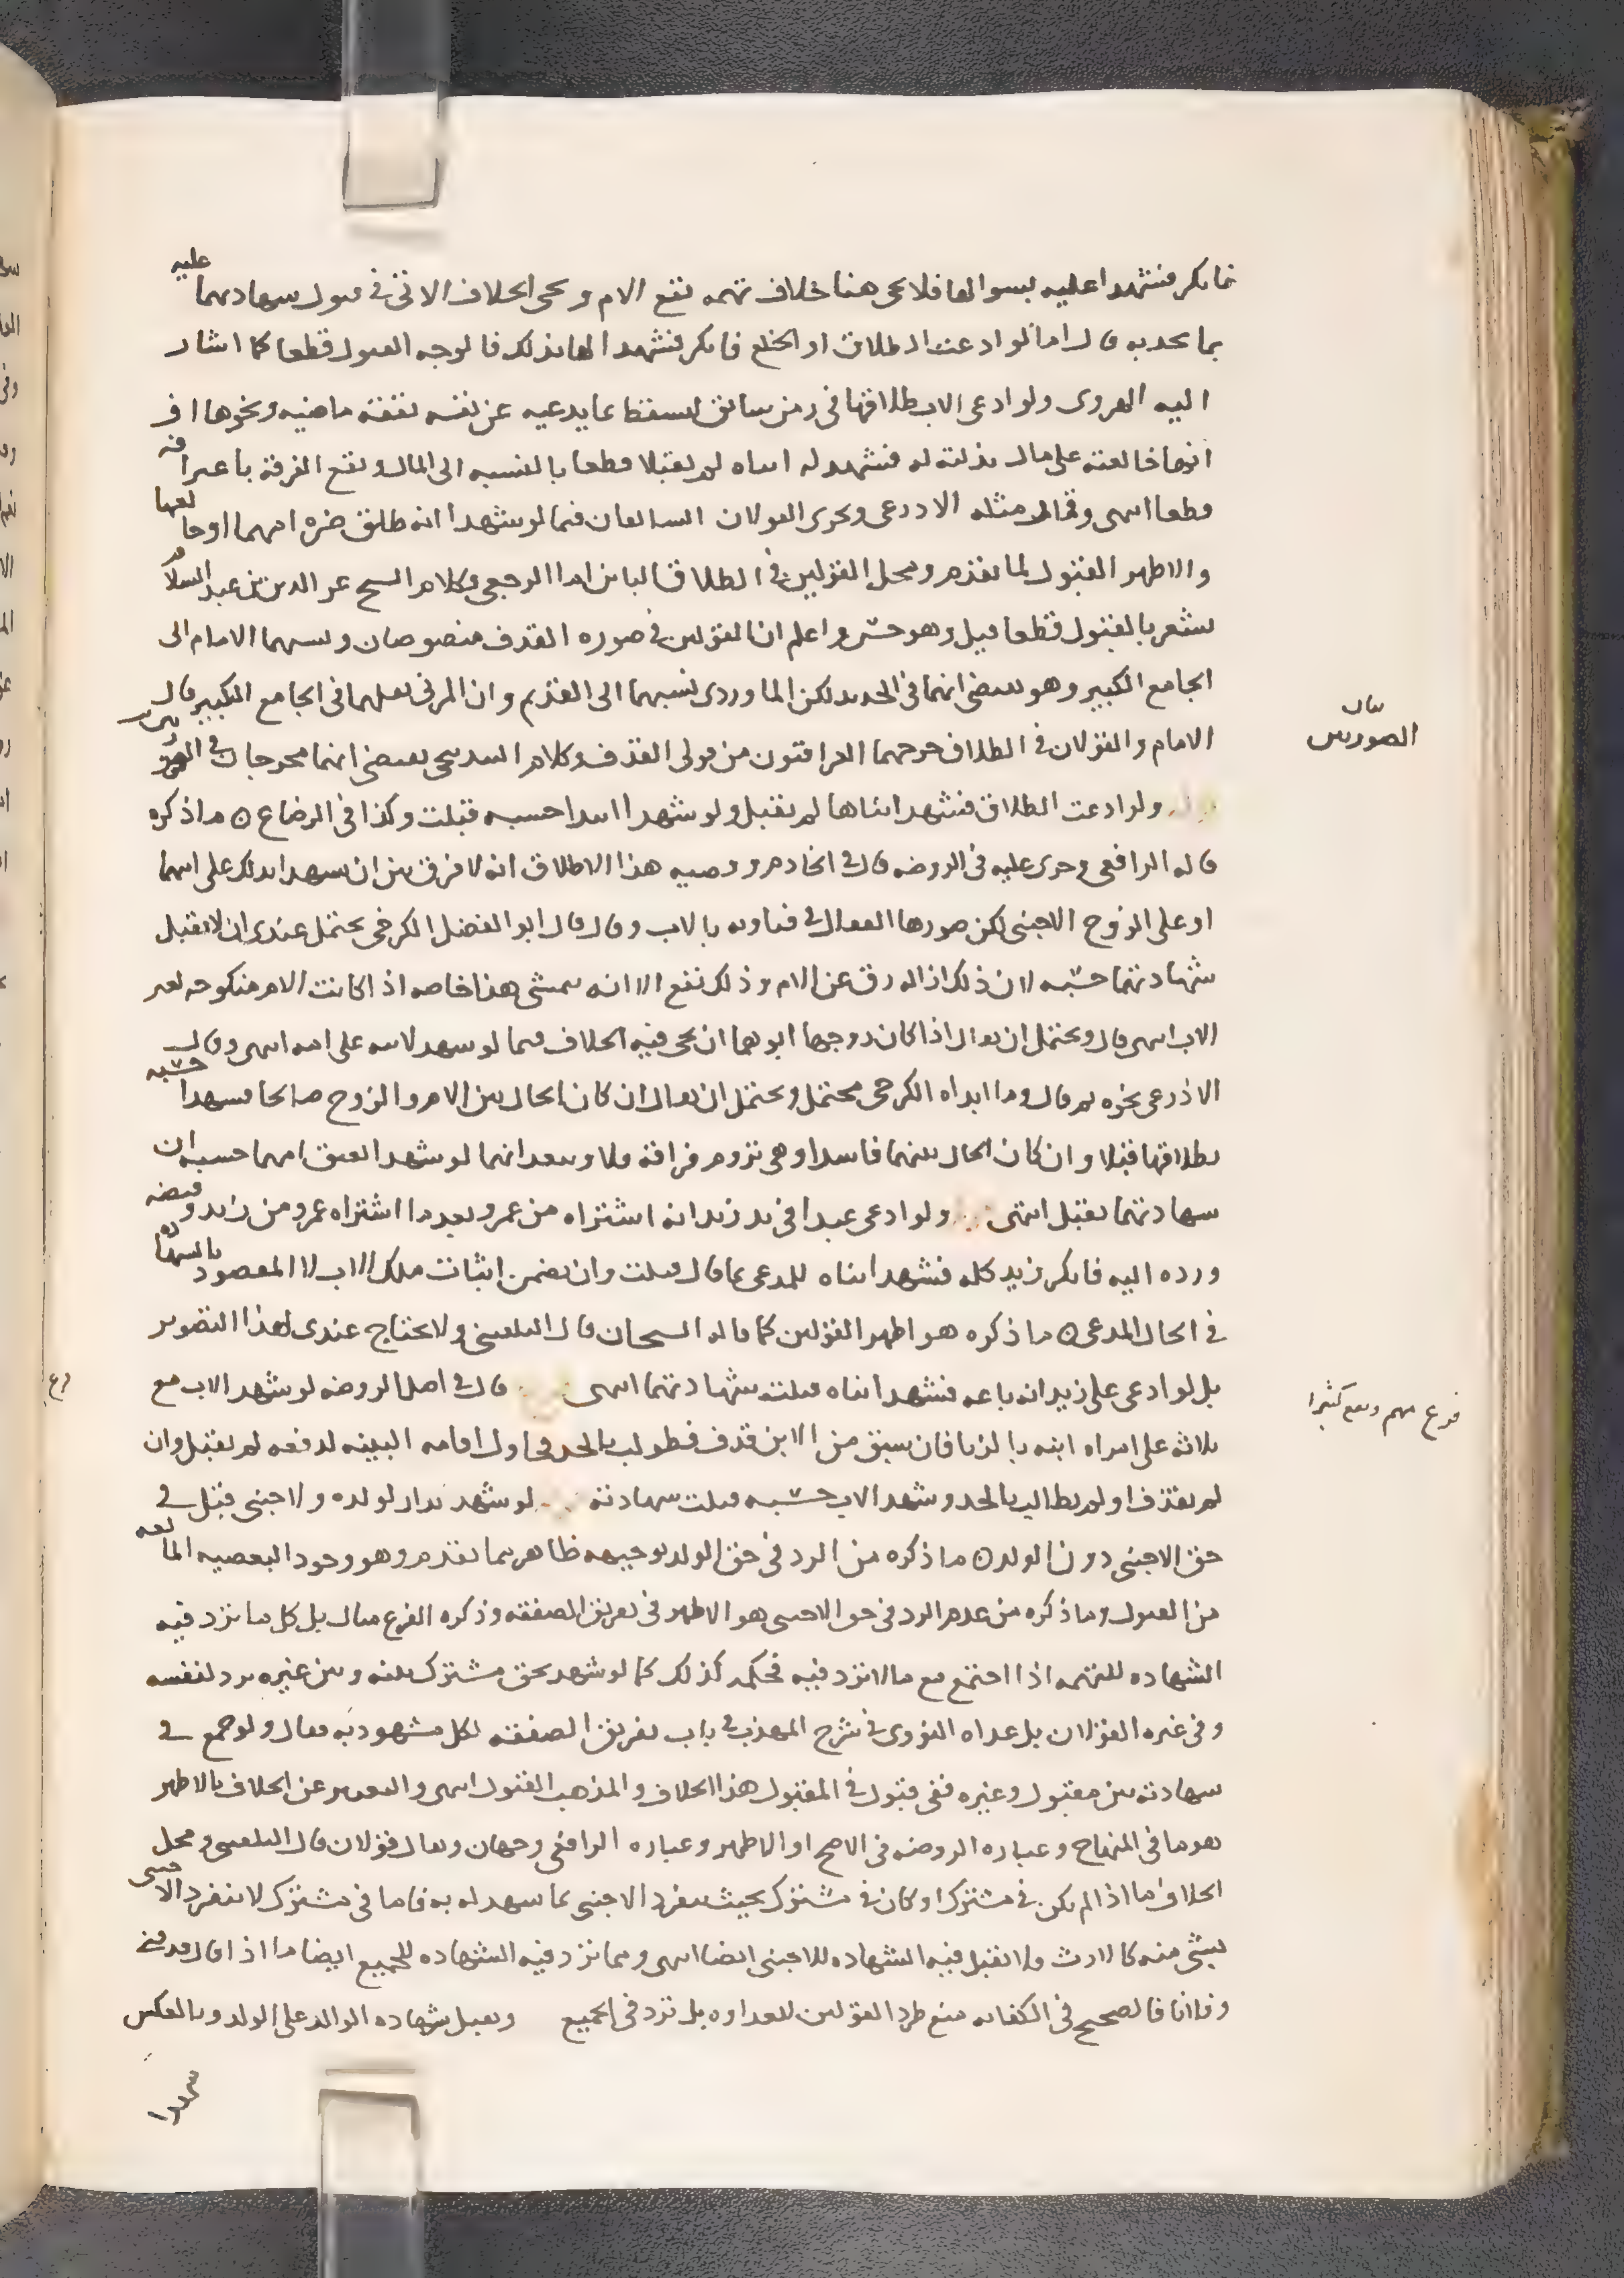 فانكر فشهدا عليه بسوالها فلا يجي هنا خلاف تهمه نفع الام ويجي الخلاف الاتي في قبول شهادتهما عليه
بما يحد به قال اما لو ادعت الطلاق او الخلع فانكر فشهدا لها بذلك فالوجه القبول قطعا كما اشار
اليه الهروي ولو ادعى الاب طلاقها في زمن سابق ليسقط ما يدعيه عن نفسه نفقة ماضيه ونحوها او
انها خالعته على مال بذلته له فشهد له ابناه لم يقبلا قطعا بالنسبه الى المال وتقع الفرقة باعترافه
قطعا انتهى وقال مثله الاذرعي ويجري القولان السابقان فيما لو شهدا انه طلق ضره امهما او خالعها
والاظهر القبول لما تقدم ومحل القولين في الطلاق البائن اما الرجعي فكلام الشيخ عز الدين بن عبد السلام
يشعر بالقبول قطعا قيل وهو حسن واعلم ان القولين في صوره القذف منصوصان ونسبهما الامام الى
الجامع الكبير وهو يقتضي انهما في الجديد لكن الماوردي نسبهما الى القديم وان المزني نقلهما في الجامع الكبير قال
الامام والقولان في الطلاق خرجهما العراقيون من قولي القذف وكلام البندنيجي يقتضي انهما مخرجان في الصورتين
ولو ادعت الطلاق فشهد ابناها لم تقبل ولو شهدا ابتدا حسبه قبلت وكذا في الرضاع ٥ ما ذكره
قاله الرافعي وجرى عليه في الروضه قال في الخادم وقضيه هذا الاطلاق انه لا فرق بين ان يشهدا بذلك على ابيهما
او على الزوج الاجنبي لكن صورها القفال في فتاويه بالاب وقال قال ابو الفضل الكرخي يحتمل عندي ان لا تقبل
شهادتهما حسبه لان ذلك ازاله رق عن الام وذلك نفع الا انه يمشي هذا خاصه اذا كانت الام منكوحه لغير
الاب انتهى قال ويحتمل ان يقال اذا كان زوجها ابوهما ان يجي فيه الخلاف فيما لو شهد لابنه على ابنه انتهى وقال
الاذرعي نحوه ثم قال وما ابداه الكرخي محتمل ويحتمل ان يقال ان كان الحال بين الام والزوج صالحا فشهدا حسبه
بطلاقها قبلا وان كان الحال بينهما فاسدا وهي تروم فراقه فلا ويبعد انهما لو شهدا بعتق امهما حسبه ان
شهادتهما تقبل انتهى ولو ادعى عبدا في يد زيد انه اشتراه من عمرو بعد ما اشتراه عمرو من زيد وقبضه
ورده اليه فانكر زيد كله فشهد ابناه للمدعي بما قال قبلت وان تضمن اثبات ملك الاب لا المقصود بالشهادة
في الحال المدعي ٥ ما ذكره هو اظهر القولين كما قاله الشيخان قال البلقيني ولا يحتاج عندي لهذا التصوير
بل لو ادعى على زيد انه باعه فشهد ابناه قبلت شهادتهما انتهى قال في اصل الروضه لو شهد الاب مع
ثلاثه على امراه ابنه بالزنا فان سبق من الابن قذف فطولب بالحد فحاول اقامه البينه لدفعه لم تقبل وان
لم يقذف او لم يطالب بالحد وشهد الاب حسبه قبلت شهادته لو شهد بدار لولده ولاجنبي قبل في
حق الاجنبي دون الولد ٥ ما ذكره من الرد في حق الولد توجيهه ظاهر مما تقدم وهو وجود البعضيه المانعه
من القبول وما ذكره من عدم الرد في حق الاجنبي هو الاظهر في تفريق الصفقه وذكره الفرع مثال بل كل ما ترد فيه
الشهاده للتهمه اذا اجتمع مع ما لا ترد فيه فحكمه كذلك كما لو شهد بحق مشترك بينه وبين غيره يرد لنفسه
وفي غيره القولان بل عداه النووي في شرح المهذب في باب تفريق الصفقه لكل مشهود به فقال ولو جمع في
شهادته بين مقبول وغيره ففي قبول في المقبول هذا الخلاف والمذهب القبول انتهى والتعبير عن الخلاف بالاظهر
هو ما في المنهاج وعباره الروضه في الاصح او الاظهر وعباره الرافعي وجهان ويقال قولان قال البلقيني ومحل
الخلاف ما اذا لم يكن في مشترك او كان في مشترك بحيث ينفرد الاجنبي بما شهد له به فاما في مشترك لا ينفرد الاجنبي
بشي منه كالارث فلا تقبل فيه الشهاده للاجنبي ايضا انتهى ومما ترد فيه الشهاده للجميع ايضا ما اذا قال قذفني
وفلانا فالصحيح في الكفايه منع طرد القولين للعداوه بل ترد في الجميع وتقبل شهاده الوالد على الولد وبالعكس
بيان
الصورتين
فرع مهم ويقع كثيرا
فرع